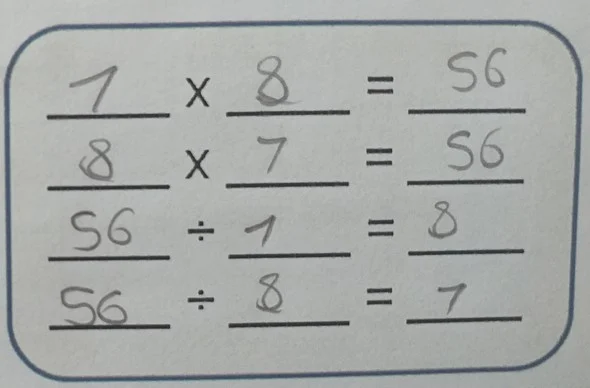 7 x 8 = 56
8 x 7 = 56
56 ÷ 7 = 8
56 ÷ 8 = 7